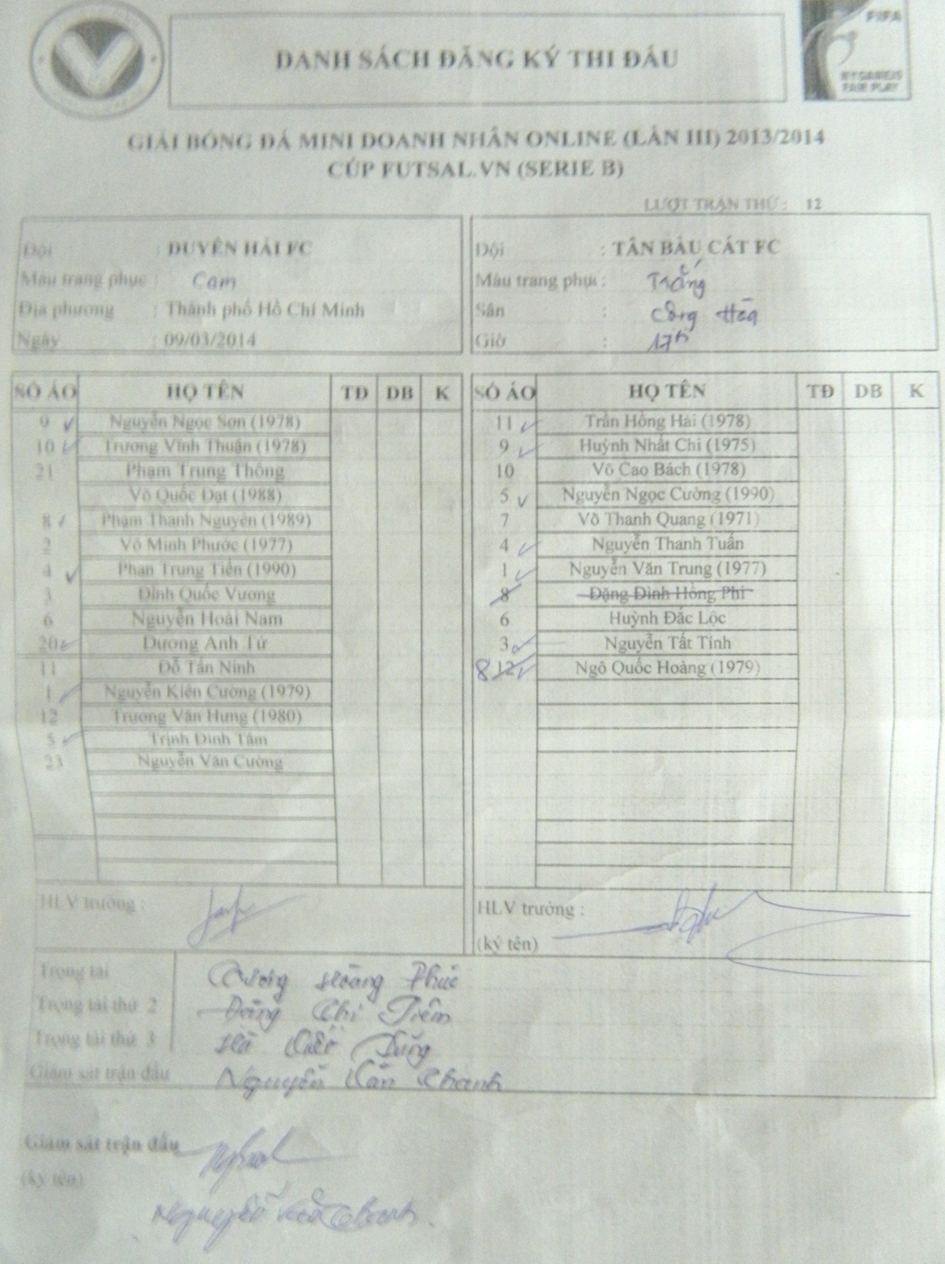 DANH SÁCH ĐĂNG KÝ THI ĐẤU
FIFA
MY GAME IS
FAIR PLAY
GIẢI BÓNG ĐÁ MINI DOANH NHÂN ONLINE (LẦN III) 2013/2014
CÚP FUTSAL.VN (SERIE B)
LƯỢT TRẬN THỨ : 12
Đội : DUYÊN HẢI FC
Màu trang phục : Cam
Địa phương : Thành phố Hồ Chí Minh
Ngày : 09/03/2014
Đội : TÂN BÀU CÁT FC
Màu trang phục : Trắng
Sân : Cộng Hòa
Giờ : 17h
SỐ ÁO HỌ TÊN TĐ DB K
9 Nguyễn Ngọc Sơn (1978)
10 Trương Vĩnh Thuận (1978)
21 Phạm Trung Thông
Võ Quốc Đạt (1988)
8 Phạm Thanh Nguyên (1989)
2 Võ Minh Phước (1977)
4 Phan Trung Tiến (1990)
3 Đinh Quốc Vương
6 Nguyễn Hoài Nam
20 Dương Anh Tứ
11 Đỗ Tấn Ninh
1 Nguyễn Kiên Cường (1979)
12 Trương Văn Hưng (1980)
5 Trịnh Đình Tâm
23 Nguyễn Văn Cường
SỐ ÁO HỌ TÊN TĐ DB K
11 Trần Hồng Hải (1978)
9 Huỳnh Nhất Chi (1975)
10 Võ Cao Bách (1978)
5 Nguyễn Ngọc Cường (1990)
7 Võ Thanh Quang (1971)
4 Nguyễn Thanh Tuấn
1 Nguyễn Văn Trung (1977)
8 Đặng Đình Hồng Phi
6 Huỳnh Đắc Lộc
3 Nguyễn Tất Tính
8 12 Ngô Quốc Hoàng (1979)
HLV trưởng :
HLV trưởng :
(ký tên)
Trọng tài Cương Hoàng Phúc
Trọng tài thứ 2 Đặng Chí
Trọng tài thứ 3 Hà Dũng
Giám sát trận đấu Nguyễn Văn Chanh
Giám sát trận đấu
(ký tên)
Nguyễn Văn Chanh